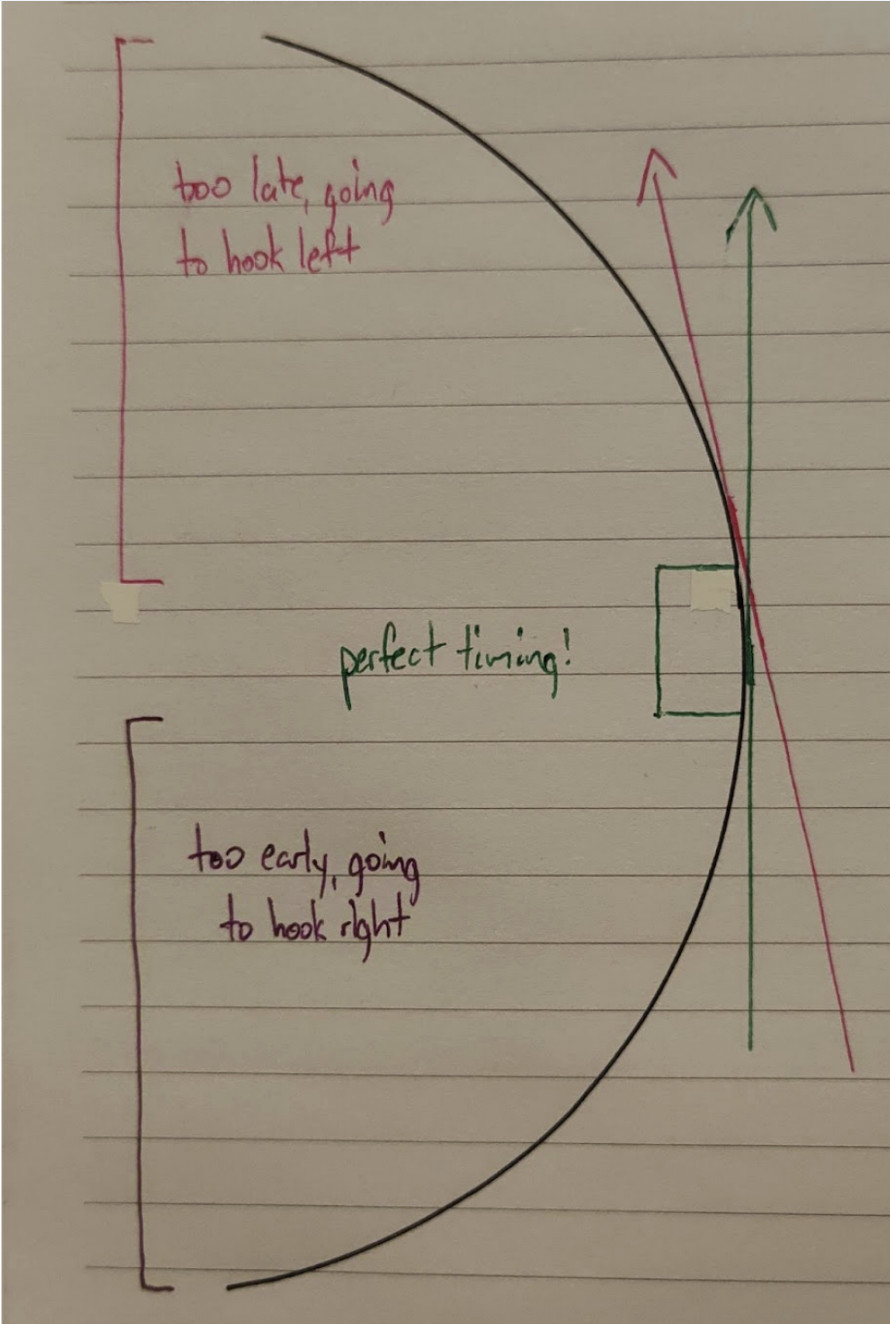 too late, going
to hook left
perfect timing!
too early, going
to hook right